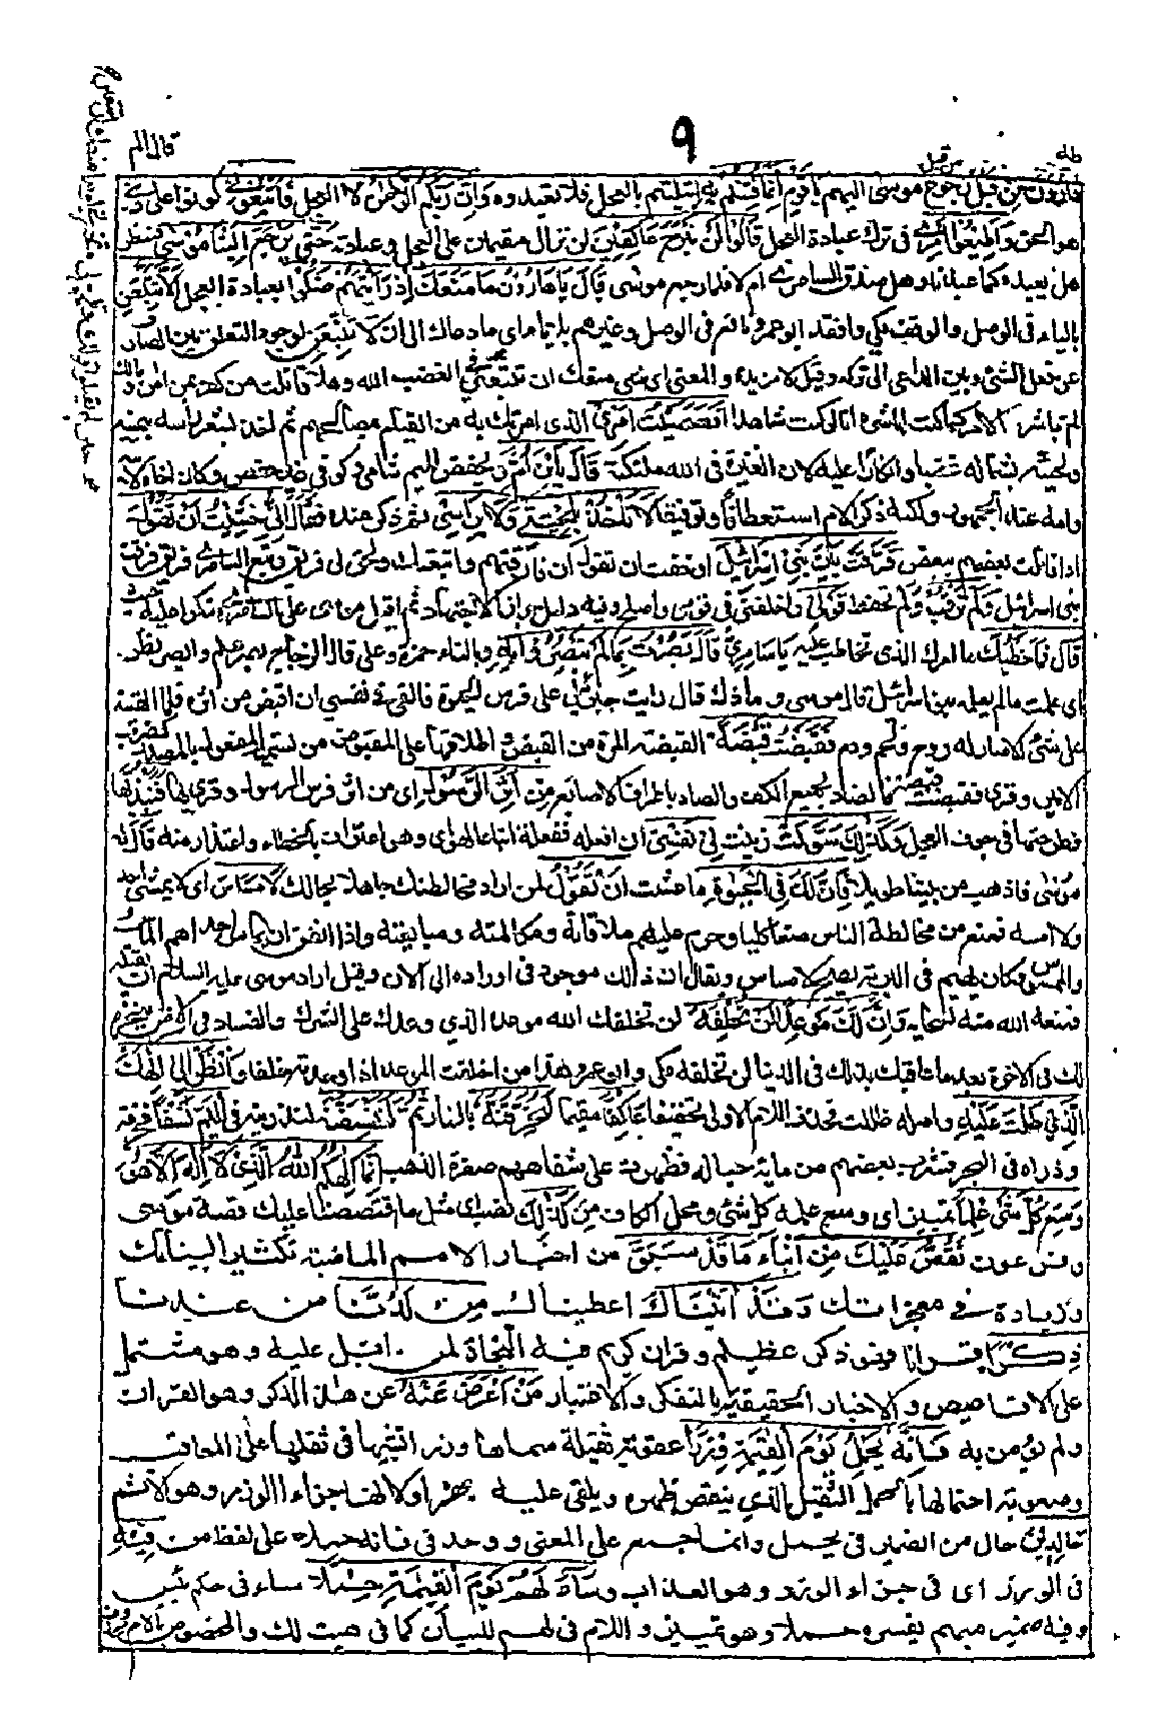 طه
٩
قال الم
من قبل
هارون من قبل رجوع موسى اليهم يا قوم انما فتنتم به ابتليتم بالعجل فلا تعبدوه وان ربكم الرحمن لا العجل فاتبعوني كونوا على دينى
هو الحق واطيعوا امري فى ترك عبادة العجل قالوا لن نبرح عليه عاكفين لن نزال مقيمين على العجل وعبادته حتى يرجع الينا موسى فننظر
هل يعبده كما عبدناه وهل صدق السامري ام لا فلما رجع موسى قال يا هارون ما منعك اذ رايتهم ضلوا بعبادة العجل الا تتبعن
بالياء فى الوصل والوقف مكي وافقه ابو عمرو ونافع فى الوصل وغيرهم بلا ياء اى ما دعاك الى ان لا تتبعن لوجود التعلق بين الصارف
عن فعل الشئ وبين الداعى الى تركه وقيل لا مزيدة والمعنى اى شئ منعك ان تتبعني فى الغضب لله وهلا قاتلت من كفر بمن امن ومالك
لم تباشر الامر كما كنت اباشره انا لو كنت شاهدا افعصيت امري الذى امرتك به من القيام بمصالحهم ثم اخذ بشعر راسه بيمينه
ولحيته بشماله غضبا وانكارا عليه لان الغيرة فى الله ملكته قال يا ابن ام وبخفض الميم شامى وكوفى غير حفص وكان اخاه لابيه
وامه عند الجمهور ولكنه ذكر الام استعطافا وترقيقا لا تاخذ بلحيتي ولا براسي ثم ذكر عذره فقال انى خشيت ان تقول
اذا قاتلت بعضهم ببعض فرقت بين بنى اسرائيل او خفت ان تقول ان فارقتهم واتبعتك ولحق بى فريق وتبع السامرى فريق فرقت
بنى اسرائيل ولم ترقب ولم تحفظ قولي اخلفنى فى قومى واصلح وفيه دليل على جواز الاجتهاد ثم اقبل موسى على السامرى منكرا عليه حيث
قال فما خطبك ما امرك الذى تخاطب عليه يا سامري قال بصرت بما لم يبصروا به وبالتاء حمزة وعلى قال الزجاج بصر علم وابصر نظر
اى علمت ما لم يعلمه بنو اسرائيل قال موسى وما ذلك قال رايت جبرئيل على فرس الحيوة فالقى فى نفسى ان اقبض من اثره فما القيته
على شئ الا صار له روح ولحم ودم فقبضت قبضة القبضة المرة من القبض واطلاقها على المقبوض من تسمية المفعول بالمصدر كضرب
الامير وقرئ فقبصت قبصة فالضاد بجميع الكف والصاد باطراف الاصابع من اثر الرسول اى من اثر فرس الرسول وقرئ بها فنبذتها
فطرحتها فى جوف العجل وكذلك سولت زينت لي نفسي ان افعله ففعلته اتباعا لهواى وهو اعتراف بالخطاء واعتذار منه قال له
موسى فاذهب من بيننا طريدا فان لك في الحيوة ما عشت ان تقول لمن اراد مخالطتك جاهلا بحالك لا مساس اى لا يمسنى احد
ولا امسه فمنع من مخالطة الناس منعا كليا وحرم عليهم ملاقاته ومكالمته ومبايعته واذا اتفق ان يماس احدا حم الماس
والممسوس وكان يهيم فى البرية يصيح لا مساس ويقال ان ذلك موجود فى اولاده الى الان وقيل اراد موسى عليه السلام ان يقتله
فمنعه الله منه لسخائه وان لك موعدا لن تخلفه لن يخلفك الله موعده الذي وعدك على الشرك والفساد فى الارض ينجزه
لك فى الاخرة بعد ما عاقبك بذلك فى الدنيا لن تخلفه مكى وابو عمرو وهذا من اخلفت الموعد اذا وجدته خلفا وانظر الى الهك
الذي ظلت عليه واصله ظللت فحذف اللام الاولى تخفيفا عاكفا مقيما لنحرقنه بالنار ثم لننسفنه لنذرينه فى اليم نسفا فحرقه
وذراه فى البحر فشرب بعضهم من مائه حبا له فظهرت على شفاههم صفرة الذهب انما الهكم الله الذي لا اله الا هو
وسع كل شئ علما تمييز اى وسع علمه كل شئ ومحل الكاف من كذلك نصب اى مثل ما قصصنا عليك قصة موسى
وفرعون نقص عليك من انباء ما قد سبق من اخبار الامم الماضية تكثيرا لبيناتك
وزيادة فى معجزاتك وقد اتيناك اعطيناك من لدنا من عندنا
ذكرا قرانا فهو ذكر عظيم وقران كريم فيه النجاة لمن اقبل عليه وهو مشتمل
على الاقاصيص والاخبار الحقيقية بالتفكر والاعتبار من اعرض عنه عن هذا الذكر وهو القران
ولم يؤمن به فانه يحمل يوم القيمة وزرا عقوبة ثقيلة سماها وزرا تشبيها فى ثقلها على المعاقب
وصعوبة احتمالها بالحمل الثقيل الذي ينقض ظهره ويلقى عليه بهره او لانها جزاء الوزر وهو الاثم
خالدين حال من الضمير فى يحمل وانما جمع على المعنى ووحد فى فانه حملا على لفظ من فيه
فى الوزر اى فى جزاء الوزر وهو العذاب وساء لهم يوم القيمة حملا ساء فى حكم بئس
وفيه ضمير مبهم يفسره حملا وهو تمييز واللام فى لهم للبيان كما فى هيت لك والمخصوص بالذم محذوف